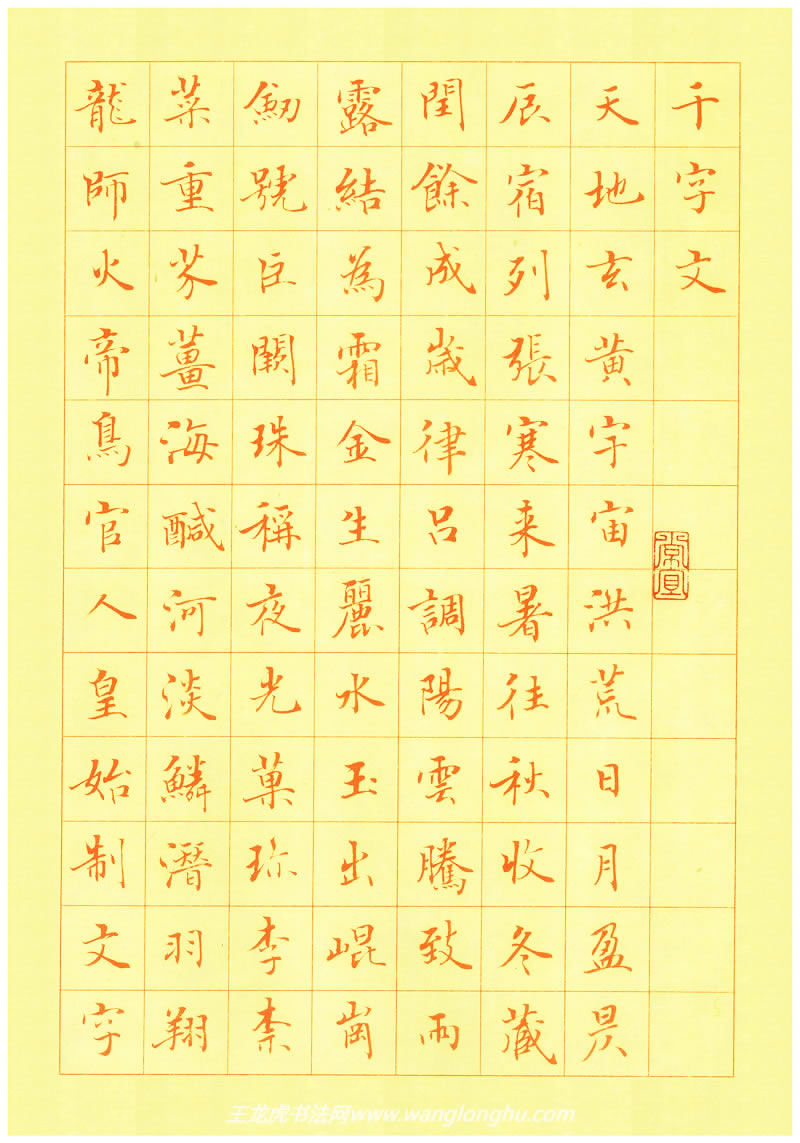 千字文
天地玄黄宇宙洪荒日月盈昃
辰宿列張寒来暑往秋收冬藏
閏餘成歲律吕調陽雲騰致雨
露結為霜金生麗水玉出崐崗
劒號巨闕珠稱夜光菓珎李柰
菜重芥薑海醎河淡鱗潛羽翔
龍師火帝鳥官人皇始制文字
王龙虎书法网www.wanglonghu.com